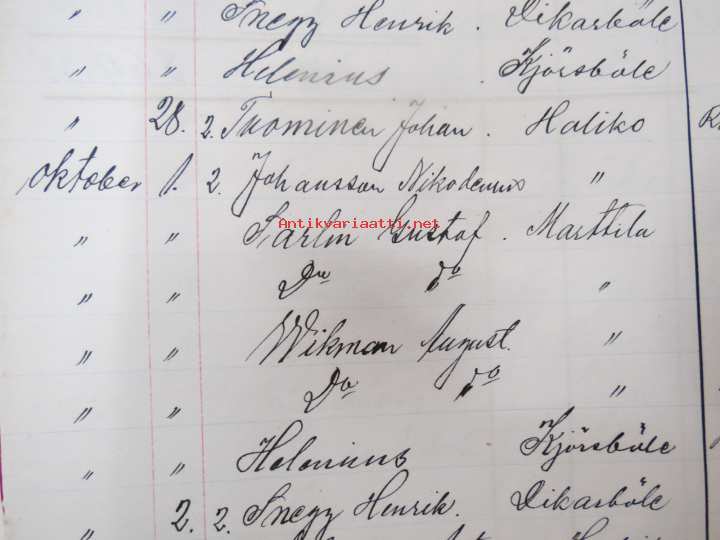 " " Snegg Henrik. Dikarböle
" " Helenius . Kjörsböle
" 28. 2. Tuominen Johan. Haliko
Oktober 1. 2. Johansson Nikodemus "
Antikvariaatti.net
" " Starlin Gustaf. Marttila
" " Do do "
" " Wikman August. "
" " Do do "
" " Helenius Kjörsböle
" 2. 2. Snegg Henrik. Dikarböle